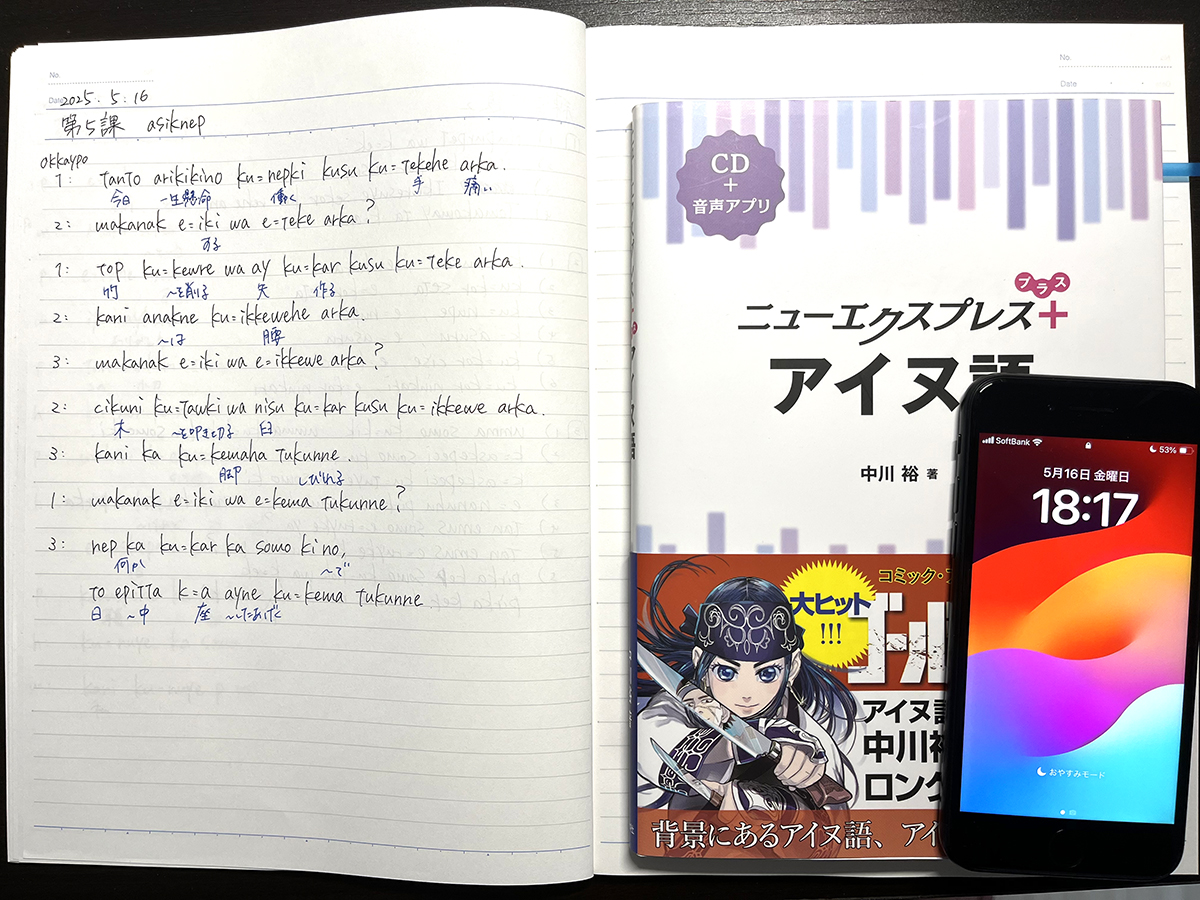 No.
Date 2025. 5. 16
第5課 asiknep
okkaypo
1: tanto arikikino ku=nepki kusu ku=tekehe arka.
今日 一生懸命 働く 手 痛い
2: makanak e=iki wa e=teke arka?
する
1: top ku=kewre wa ay ku=kar kusu ku=teke arka.
竹 〜を削る 矢 作る
2: kani anakne ku=ikkewehe arka.
〜は 腰
3: makanak e=iki wa e=ikkewe arka?
2: cikuni ku=tawki wa nisu ku=kar kusu ku=ikkewe arka.
木 〜を叩き切る 臼
3: kani ka ku=kemaha tukunne.
脚 しびれる
1: makanak e=iki wa e=kema tukunne?
3: nep ka ku=kar ka somo ki no,
何か 〜で
to epitta k=a ayne ku=kema tukunne.
日 〜中 座 〜したあげく
No.
Date
CD
+
音声アプリ
プラス
ニューエクスプレス+
アイヌ語
中川 裕 著
コミック・
大ヒット
!!!
ゴール
アイヌ語
中川裕
ロング
背景にあるアイヌ語、アイ
SoftBank 53%
5月16日 金曜日
18:17
おやすみモード